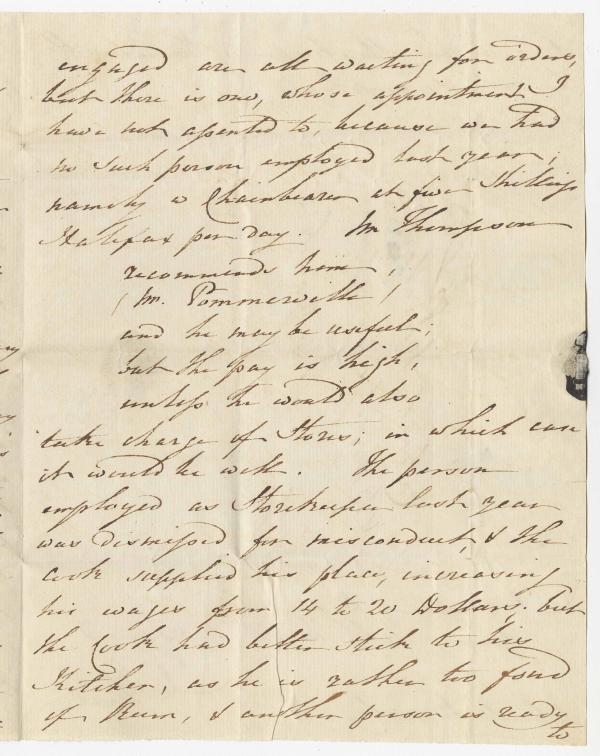 engaged are all waiting for orders,
but there is one, whose appointment I
have not assented to, because we had
no such person employed last year;
namely a Chainbearer at five Shillings
Halifax per day. Mr Thompson
recommends him,
(Mr. Pommerville)
and he may be useful;
but the pay is high,
unless he would also
take charge of Stores; in which case
it would be well. The person
employed as Storekeeper last year
was dismissed for misconduct, & the
Cook supplied his place, increasing
his wages from 14 to 20 Dollars: but
the Cook had better stick to his
Kitchen, as he is rather too fond
of Rum, & another person is ready
to